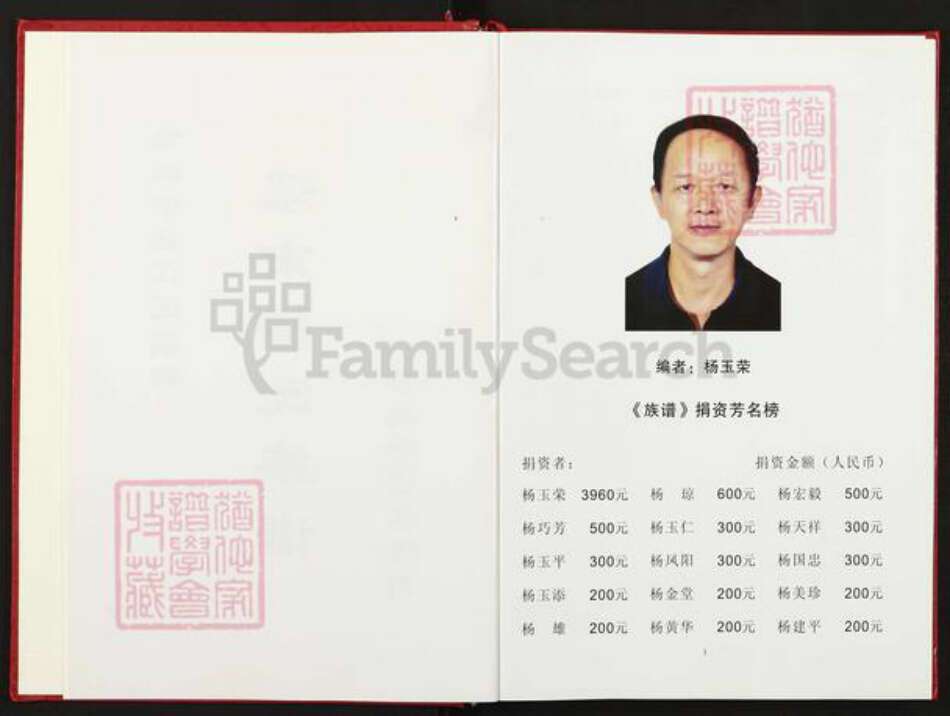 猶他家
譜學會
收藏
FamilySearch
猶他家
譜學會
收藏
编者：杨玉荣
《族谱》捐资芳名榜
捐资者： 捐资金额（人民币）
杨玉荣 3960元 杨 琼 600元 杨宏毅 500元
杨巧芳 500元 杨玉仁 300元 杨天祥 300元
杨玉平 300元 杨凤阳 300元 杨国忠 300元
杨玉添 200元 杨金堂 200元 杨美珍 200元
杨 雄 200元 杨黄华 200元 杨建平 200元